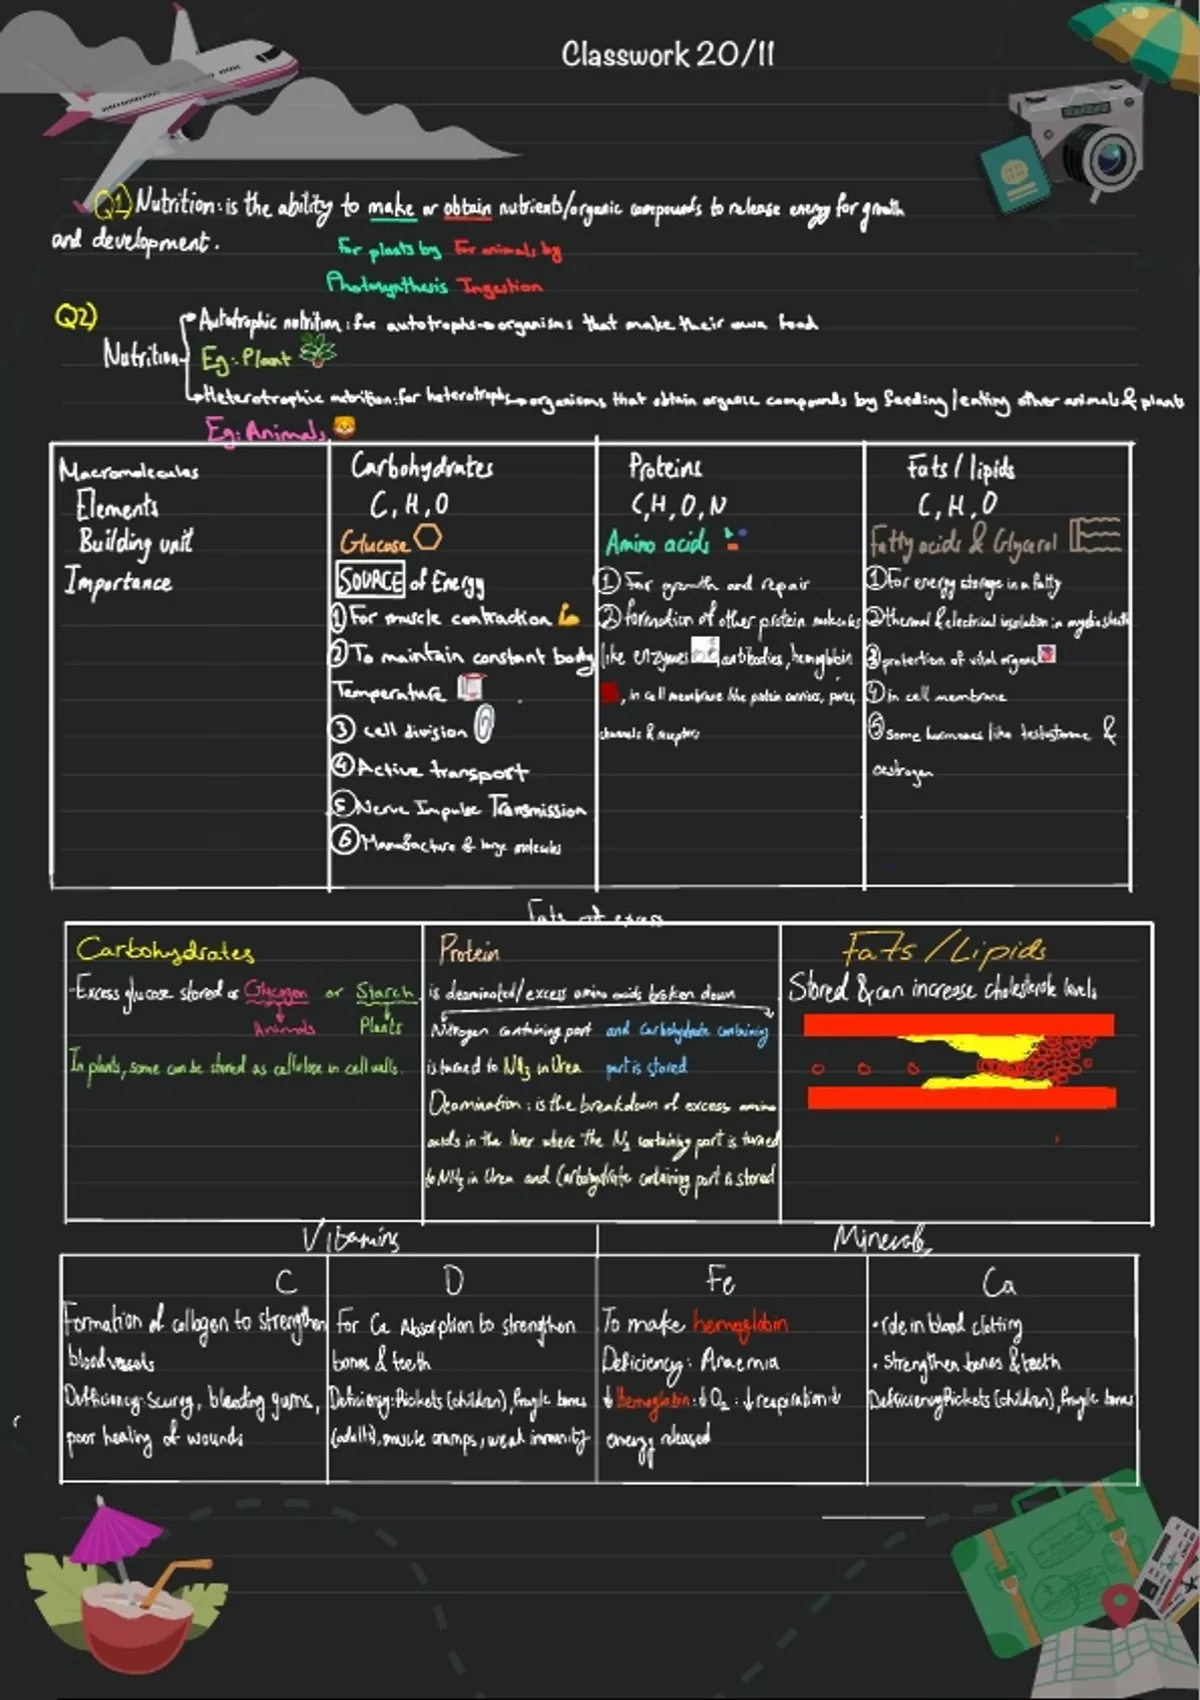 Classwork 20/11
Q1) Nutrition: is the ability to make or obtain nutrients/organic compounds to release energy for growth
and development.
For plants by For animals by
Photosynthesis Ingestion
Q2)
Autotrophic nutrition: for autotrophs→organisms that make their own food
Nutrition
Eg: Plant
Heterotrophic nutrition: for heterotrophs→organisms that obtain organic compounds by feeding/eating other animals & plants
Eg: Animals
Macromolecules
Elements
Building unit
Importance
Carbohydrates
C, H, O
Glucose
SOURCE of Energy
① For muscle contraction
② To maintain constant body
Temperature
③ cell division
④ Active transport
⑤ Nerve Impulse Transmission
⑥ Manufacture of large molecules
Proteins
C, H, O, N
Amino acids
① For growth and repair
② formation of other protein molecules
like enzymes, antibodies, hemoglobin
, in cell membrane like protein carriers, pores,
channels & receptors
Fats/lipids
C, H, O
Fatty acids & Glycerol
① For energy storage in a fatty
② thermal & electrical insulation in myelin sheath
③ protection of vital organs
④ in cell membrane
⑤ Some hormones like testosterone &
oestrogen
Fats of excess
Carbohydrates
-Excess glucose stored as Glycogen or Starch
Animals Plants
In plants, some can be stored as cellulose in cell walls.
Protein
is deaminated/excess amino acids broken down
Nitrogen containing part and carbohydrate containing
is turned to NH3 in Urea part is stored
Deamination: is the breakdown of excess amino
acids in the liver where the N2 containing part is turned
to NH3 in Urea and Carbohydrate containing part is stored
Fats/Lipids
Stored & can increase cholesterole levels
Vitamins
Minerals
C
Formation of collagen to strengthen
blood vessels
Defficiency: scurvy, bleeding gums,
poor healing of wounds
D
For Ca Absorption to strengthen
bones & teeth
Deficiency: Rickets (children), fragile bones
(adults), muscle cramps, weak immunity
Fe
To make hemoglobin
Deficiency: Anaemia
↓ hemoglobin: ↓ O2: ↓ respiration ↓
energy released
Ca
• role in blood clotting
• strengthen bones & teeth
Defficiency Rickets (children), fragile bones